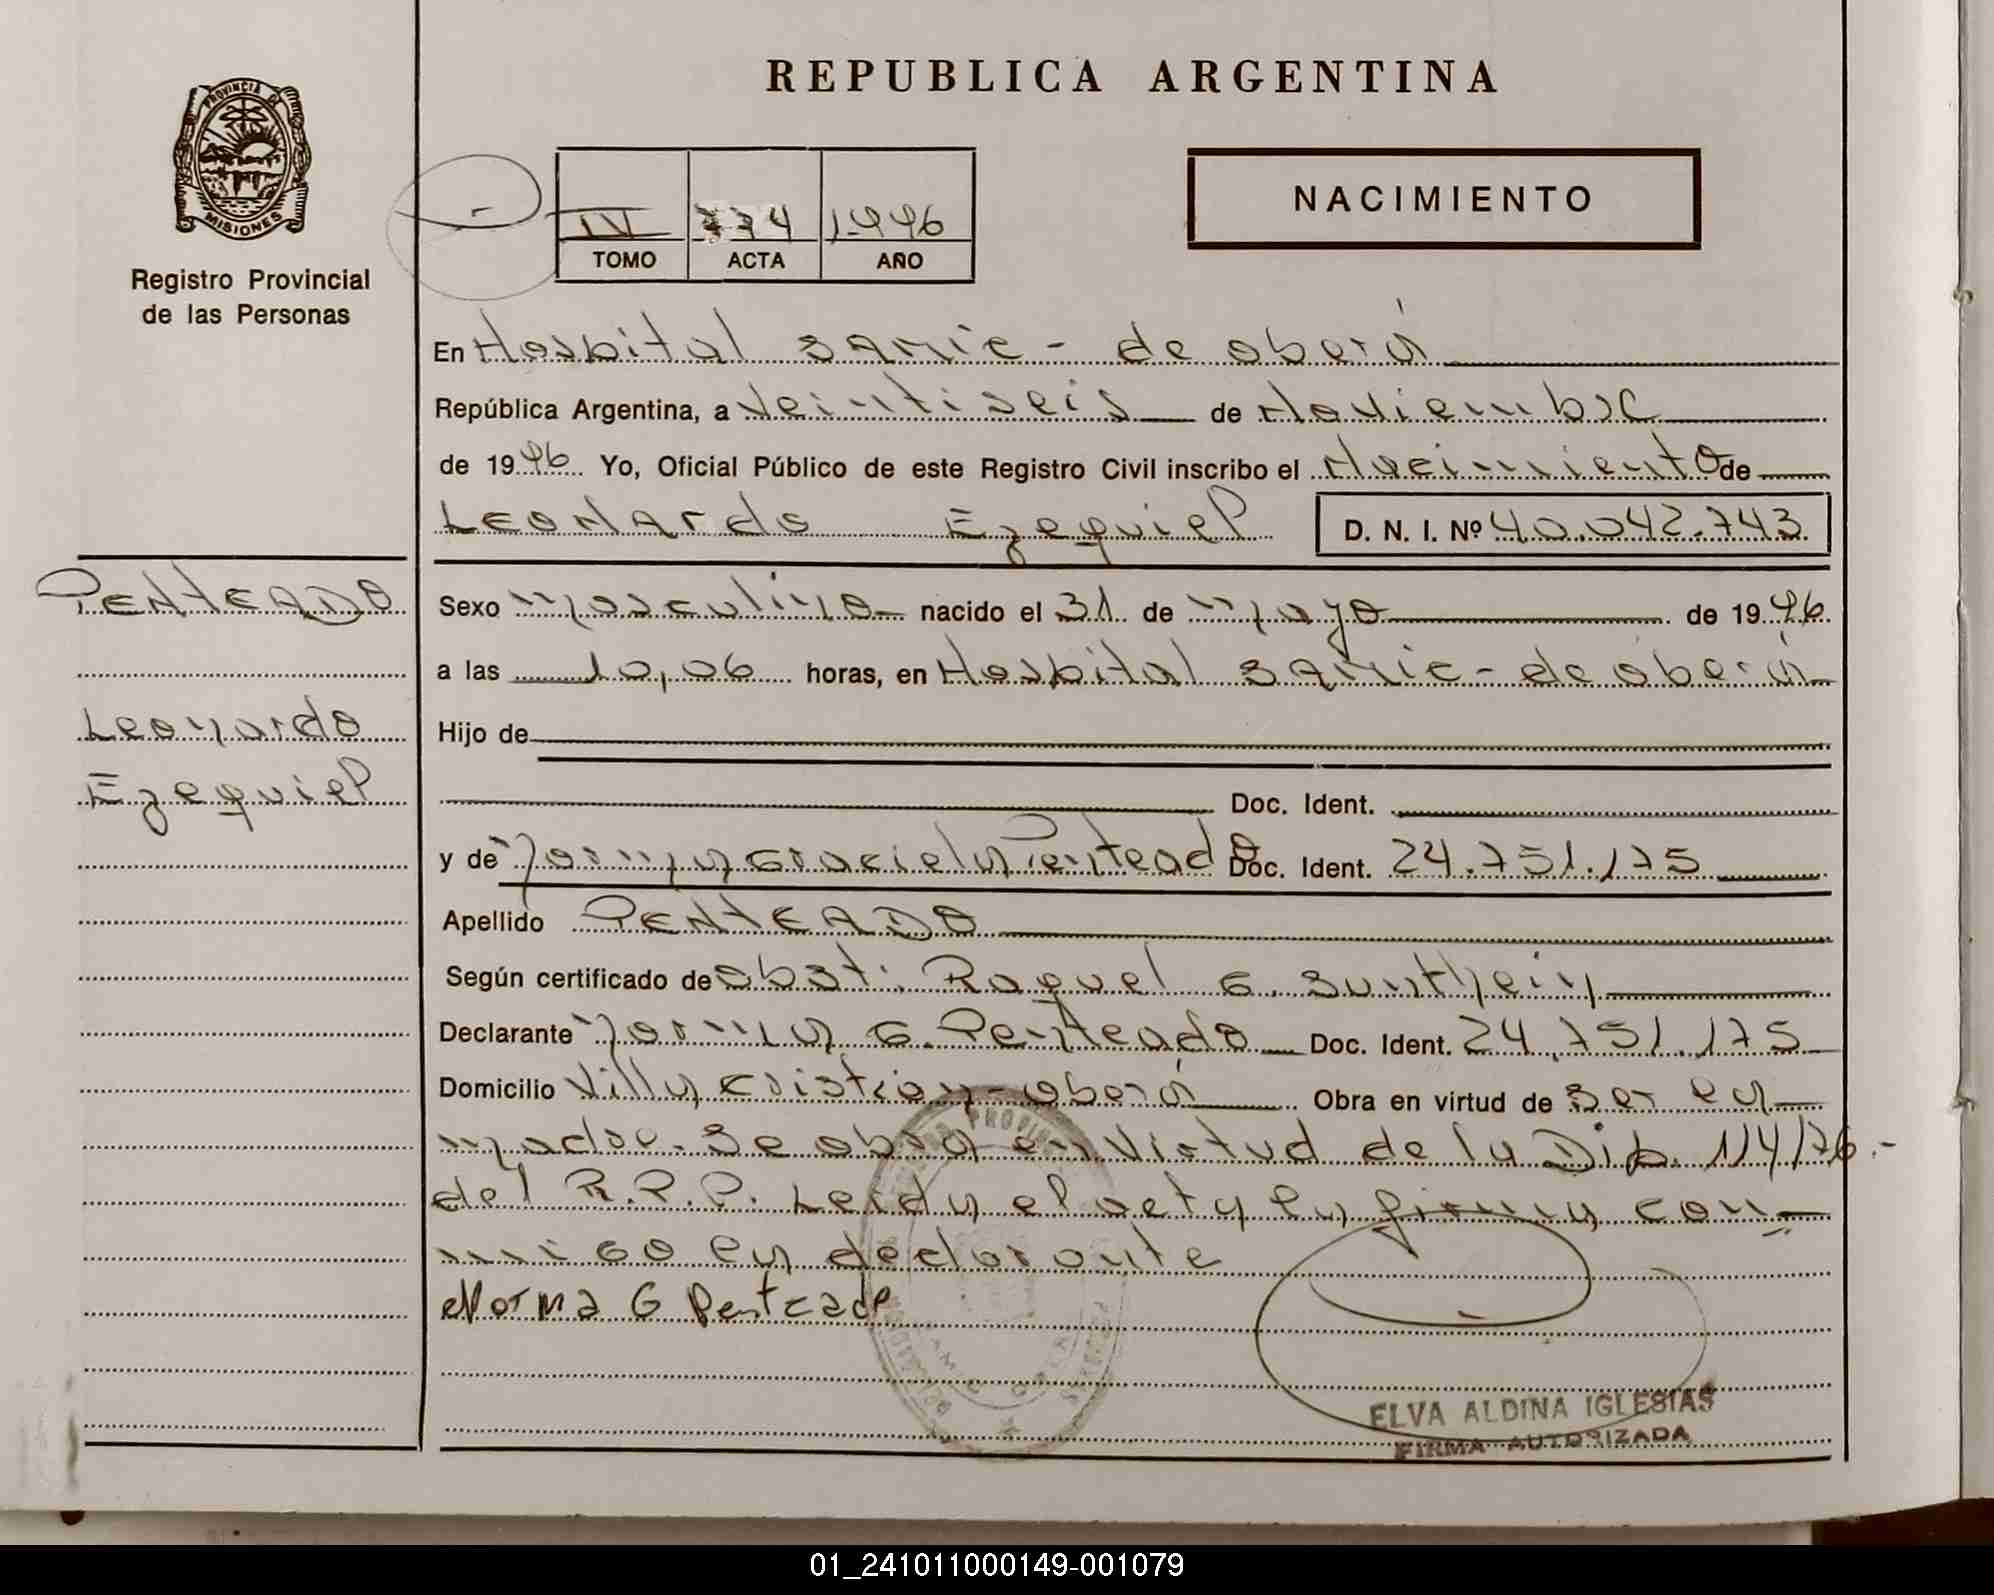 REPUBLICA ARGENTINA
PROVINCIA DE
MISIONES
Registro Provincial
de las Personas
NACIMIENTO
IV 774 1.996
TOMO ACTA AÑO
En Hospital Samic - de oberá
República Argentina, a Veintiseis de Noviembre
de 1996 Yo, Oficial Público de este Registro Civil inscribo el Nacimiento de
Leonardo Ezequiel D. N. I. Nº 40.042.743
PENTEADO
Leonardo
Ezequiel
Sexo masculino nacido el 31 de mayo de 1996
a las 10,06 horas, en Hospital Samic - de oberá
Hijo de
Doc. Ident.
y de Norma Graciela Penteado Doc. Ident. 24.751.175
Apellido PENTEADO
Según certificado de obst. Raquel G. Sunthein
Declarante Norma G. Penteado Doc. Ident. 24.751.175
Domicilio Villa Cristian - oberá Obra en virtud de ser la
madre. Se obra en virtud de la Dip. 114/96.-
del R.P.P. Leida el acta la firma con-
migo la declarante
Norma G Penteado
ELVA ALDINA IGLESIAS
FIRMA AUTORIZADA
01_241011000149-001079